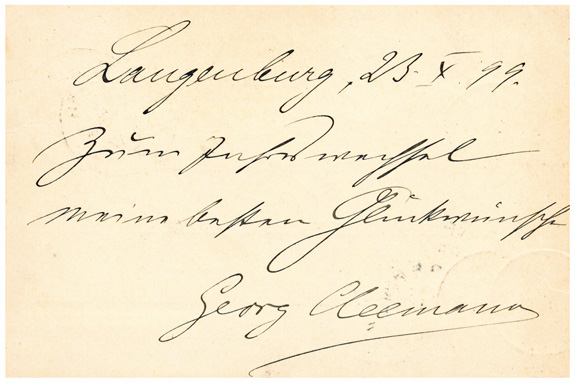 Langenburg, 23. X. 99.
Zum Jahreswechsel
meine besten Glückwünsche
Georg Cleemann